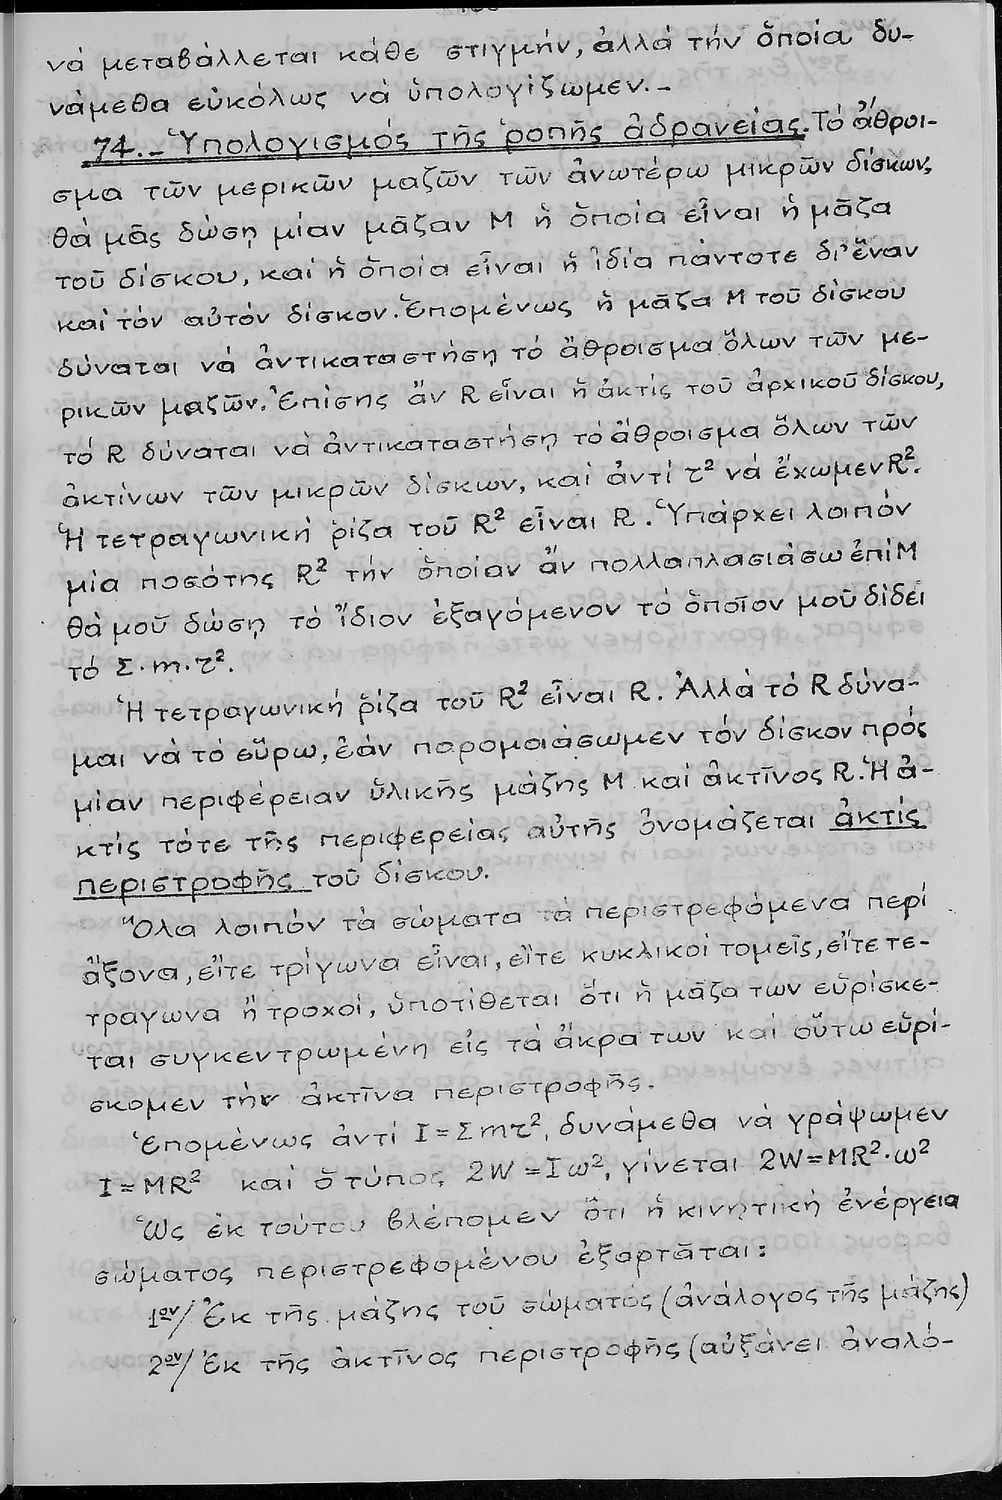 νά μεταβάλλεται κάθε στιγμήν, ἀλλά τήν ὅποία δυ-
νάμεθα εὐκόλως νά ὑπολογίζωμεν.-
74.- Ὑπολογισμός τῆς ῥοπῆς ἀδρανείας. Τό ἄθροι-
σμα τῶν μερικῶν μαζῶν τῶν ἀνωτέρω μικρῶν δίσκων,
θά μᾶς δώσῃ μίαν μᾶζαν M ἡ ὅποία εἶναι ἡ μᾶζα
τοῦ δίσκου, καί ἡ ὅποία εἶναι ἡ ἰδία πάντοτε δι' ἕναν
καί τόν αὐτόν δίσκον. Ἑπομένως ἡ μᾶζα M τοῦ δίσκου
δύναται νά ἀντικαταστήσῃ τό ἄθροισμα ὅλων τῶν με-
ρικῶν μαζῶν. Ἐπίσης ἄν R εἶναι ἡ ἀκτίς τοῦ ἀρχικοῦ δίσκου,
τό R δύναται νά ἀντικαταστήσῃ τό ἄθροισμα ὅλων τῶν
ἀκτίνων τῶν μικρῶν δίσκων, καί ἀντί τ² νά ἔχωμεν R².
Ἡ τετραγωνική ῥίζα τοῦ R² εἶναι R. Ὑπάρχει λοιπόν
μία ποσότης R² τήν ὅποίαν ἄν πολλαπλασιάσω ἐπί M
θά μοῦ δώσῃ τό ἴδιον ἐξαγόμενον τό ὅποῖον μοῦ δίδει
τό Σ·m·τ².
Ἡ τετραγωνική ῥίζα τοῦ R² εἶναι R. Ἀλλά τό R δύνα-
μαι νά τό εὕρω, ἐάν παρομοιάσωμεν τόν δίσκον πρός
μίαν περιφέρειαν ὑλικῆς μάζης M καί ἀκτῖνος R. Ἡ ἀ-
κτίς τότε τῆς περιφερείας αὐτῆς ὀνομάζεται ἀκτίς
περιστροφῆς τοῦ δίσκου.
Ὅλα λοιπόν τά σώματα τά περιστρεφόμενα περί
ἄξονα, εἴτε τρίγωνα εἶναι, εἴτε κυκλικοί τομεῖς, εἴτε τε-
τράγωνα ἤ τροχοί, ὑποτίθεται ὅτι ἡ μᾶζα των εὑρίσκε-
ται συγκεντρωμένη εἰς τά ἄκρα των καί οὕτω εὑρί-
σκομεν τήν ἀκτῖνα περιστροφῆς.
Ἑπομένως ἀντί I = Σmτ², δυνάμεθα νά γράψωμεν
I = MR² καί ὁ τύπος 2W = Iω², γίνεται 2W = MR²·ω²
Ὡς ἐκ τούτου βλέπομεν ὅτι ἡ κινητική ἐνέργεια
σώματος περιστρεφομένου ἐξαρτᾶται:
1ον/ Ἐκ τῆς μάζης τοῦ σώματος (ἀνάλογος τῆς μάζης)
2ον/ Ἐκ τῆς ἀκτῖνος περιστροφῆς (αὐξάνει ἀναλό-